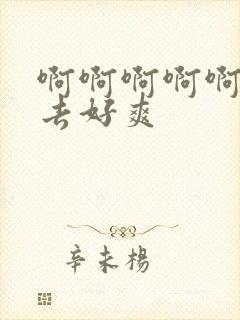 啊啊啊啊啊
去好爽
辛未楊